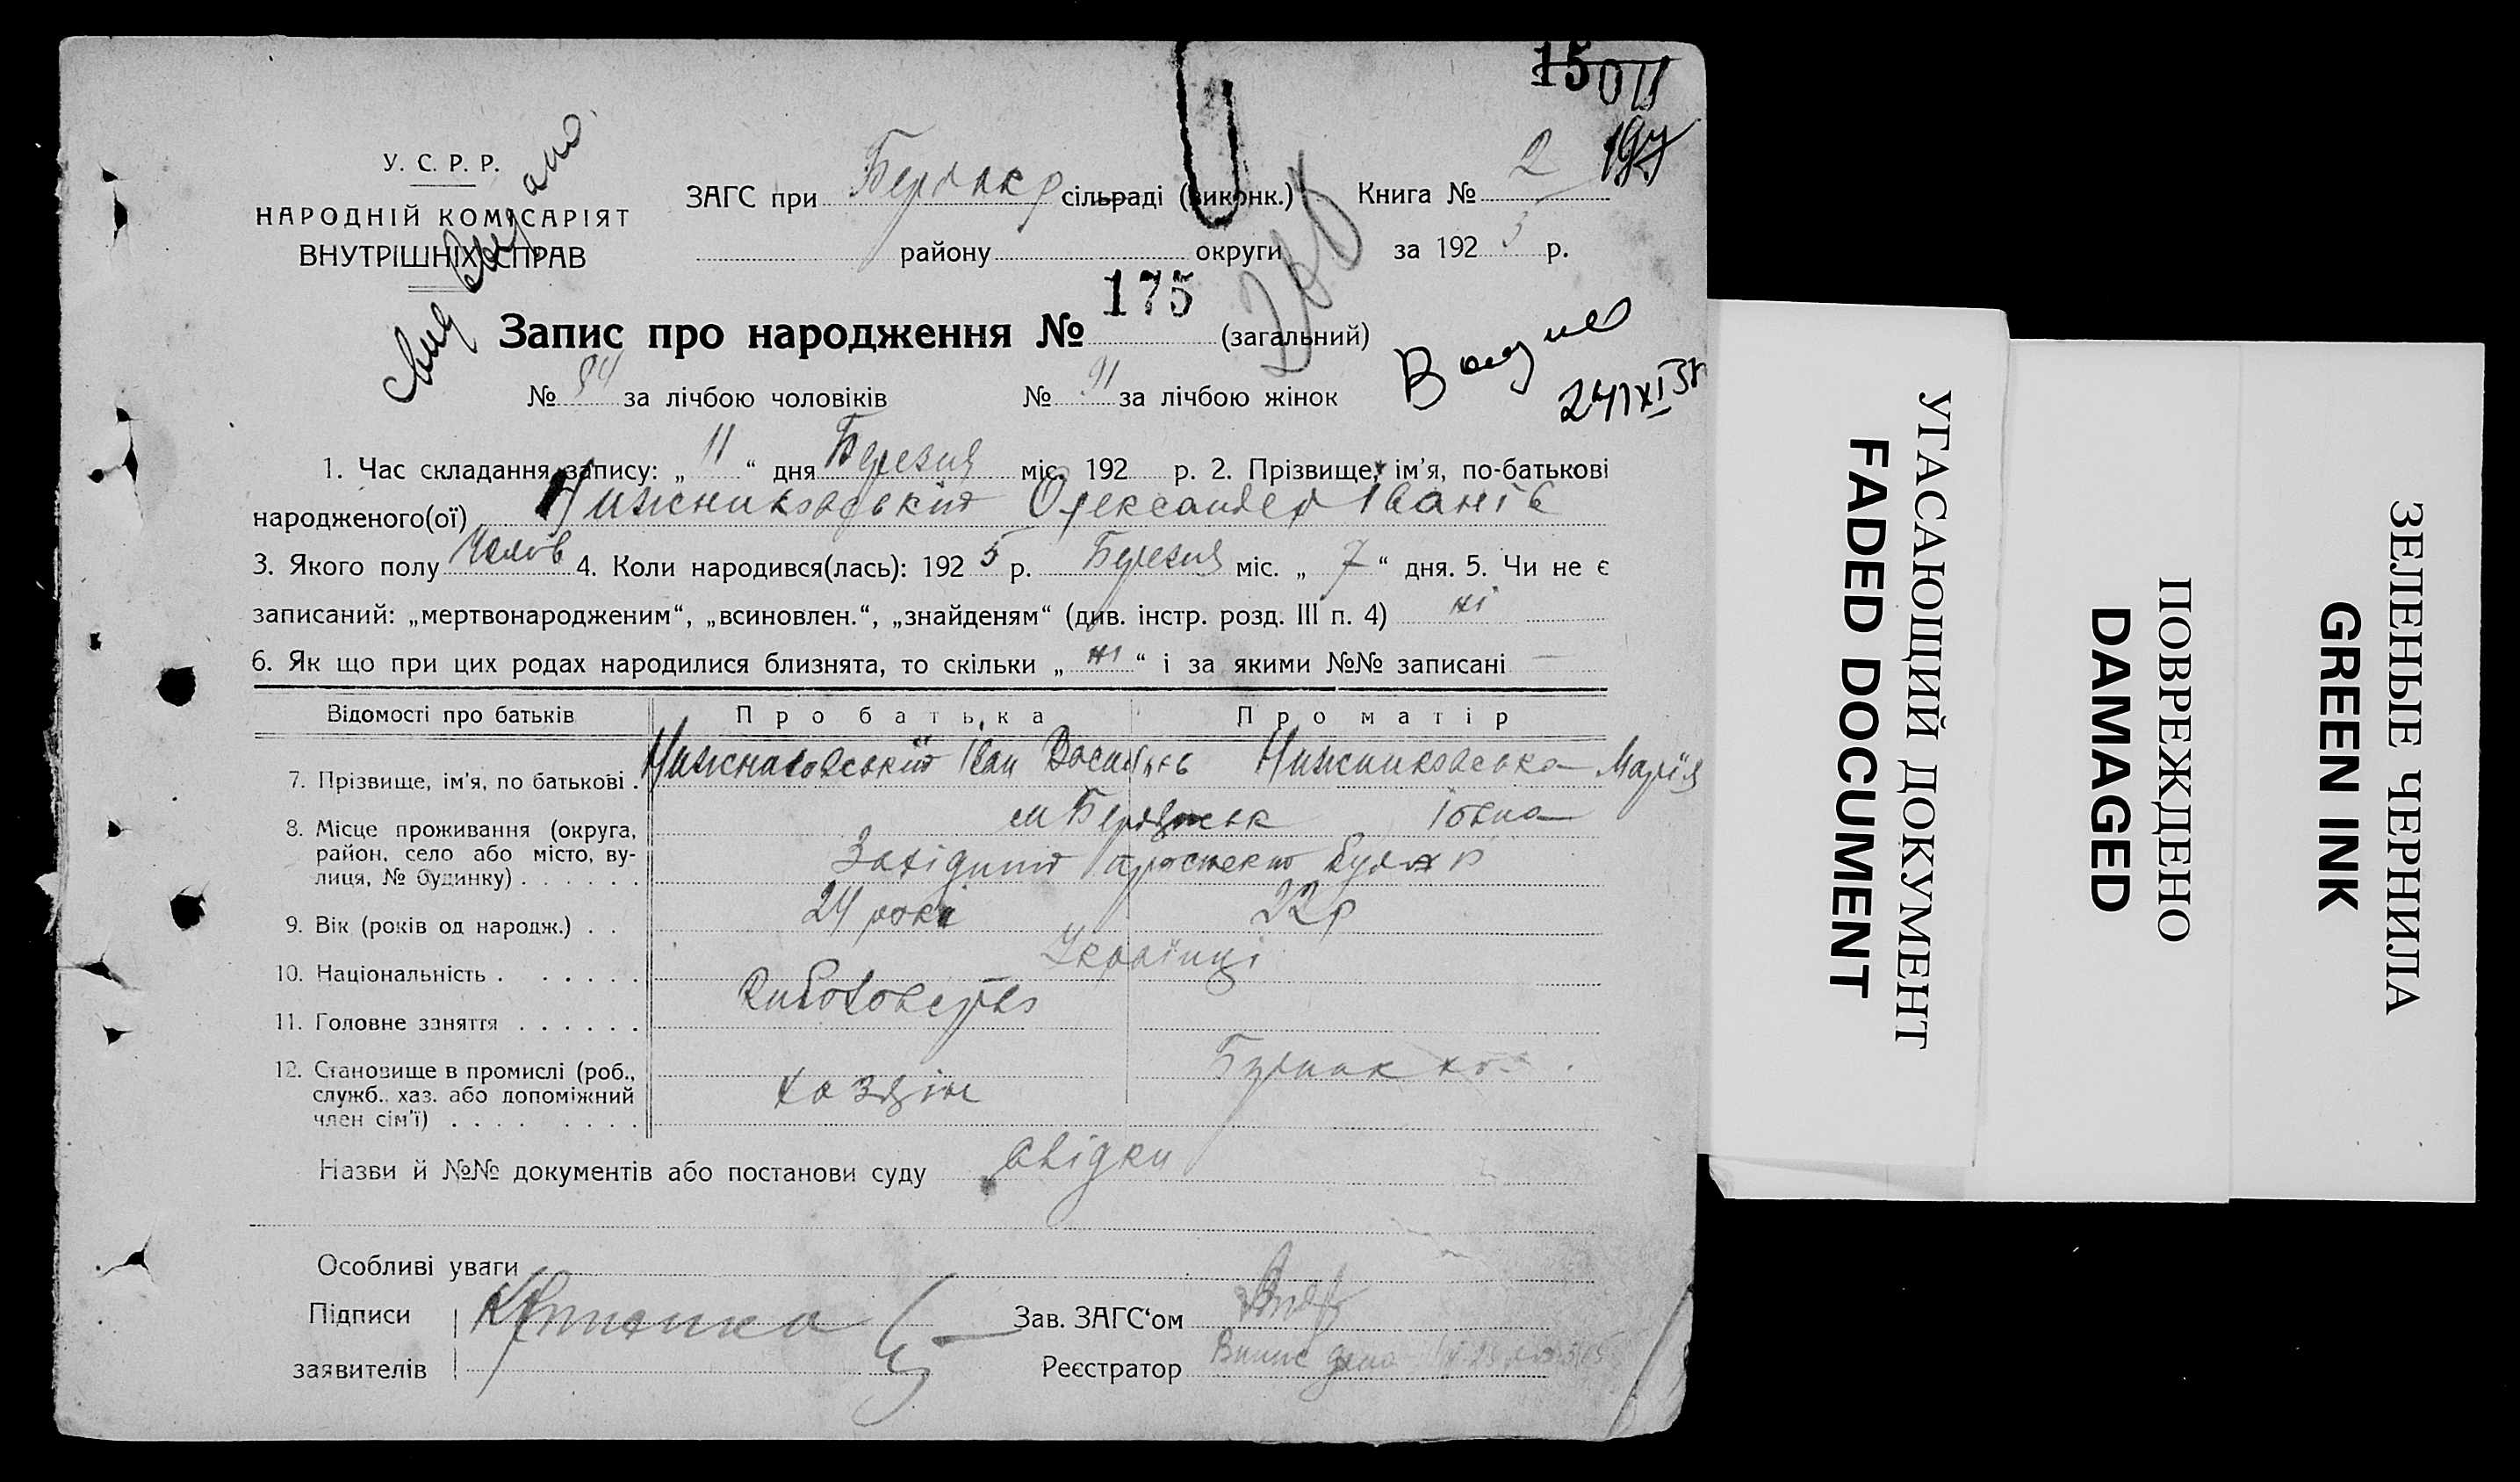 150
197
У. С. Р. Р.
НАРОДНІЙ КОМІСАРІЯТ
ВНУТРІШНІХ СПРАВ
ЗАГС при сільраді (виконк.) Книга № 2
району округи за 1925 р.
Запис про народження № 175 (загальний)
№ 84 за лічбою чоловіків № 91 за лічбою жінок
1. Час складання запису: „ 11 “ дня Березня міс. 192 р. 2. Прізвище, ім’я, по-батькові
народженого(ої) Нижниковський Олександер Іванів
3. Якого полу Чолов 4. Коли народився(лась): 1925 р. Березня міс. „ 7 “ дня. 5. Чи не є
записаний: „мертвонародженим“, „всиновлен.“, „знайденям“ (див. інстр. розд. III п. 4) ні
6. Як що при цих родах народилися близнята, то скільки „ ні “ і за якими №№ записані —
Відомості про батьків Про батька Про матір
7. Прізвище, ім’я, по батькові . Нижниковський Іван Васильев Нижниковська Марія
Івана
8. Місце проживання (округа,
район, село або місто, ву-
лиця, № будинку) . . . . . .
м Бердянськ
Західний проспект
9. Вік (років од народж.) . . 24 роки 22 р
10. Національність . . . . . . Українці
11. Головне заняття . . . . . .
12. Становище в промислі (роб.,
служб., хаз. або допоміжний
член сім’ї) . . . . . . . .
хазяїн
Назви й №№ документів або постанови суду свідки
Особливі уваги
Підписи
заявителів
Зав. ЗАГС‘ом
Реєстратор
УГАСАЮЩИЙ ДОКУМЕНТ
FADED DOCUMENT
ПОВРЕЖДЕНО
DAMAGED
ЗЕЛЕНЫЕ ЧЕРНИЛА
GREEN INK